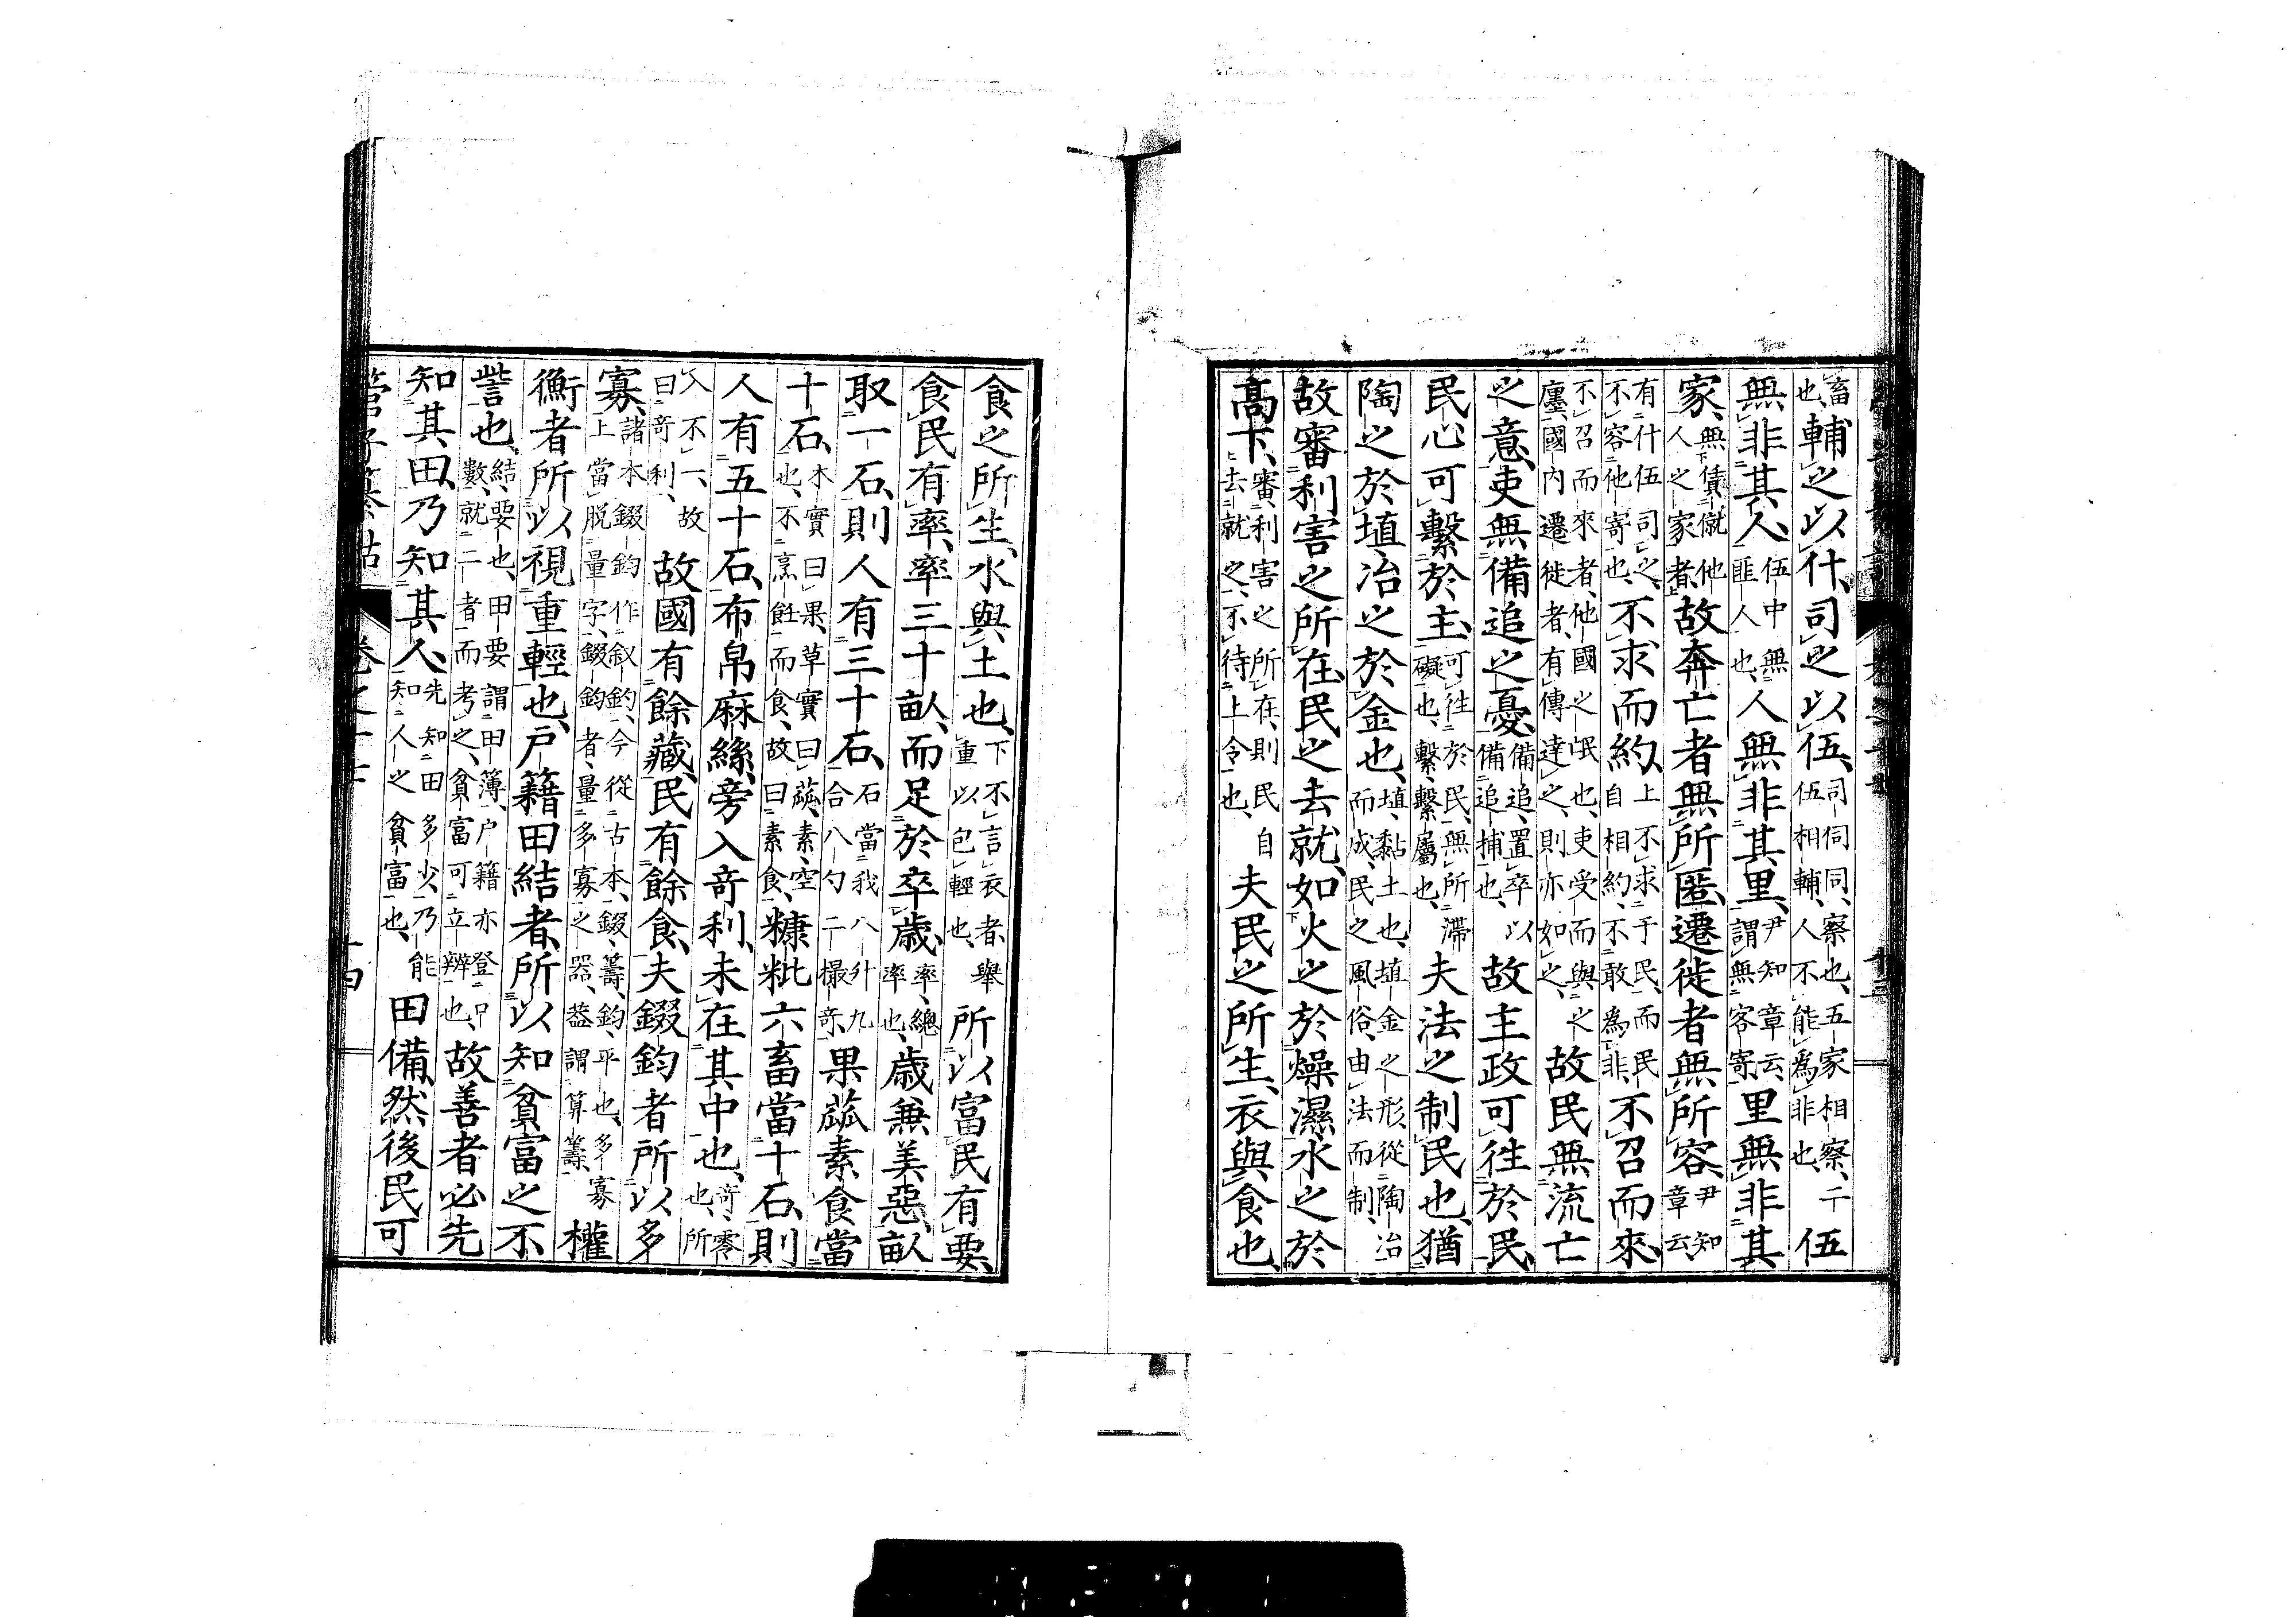 畜也、輔之以什、司之以伍、司伺同、察也、五家相察、十伍相輔、人不能為非也、伍
無非其人、伍中無匪人也、人無非其里、尹知章云、謂無客寄、里無非其
家、無賃僦他人之家者、故奔亡者無所匿、遷徙者無所容、尹知章云、
有什伍司之、不容他寄也、不求而約、上不求于民、而民自相約、不敢為非、不召而來、
不召而來者、他國之氓也、吏受而與之廛、國內遷徙者、有傳達之、則亦如之、故民無流亡
之意、吏無備追之憂、備追、置卒以備追捕也、故主政可往於民、
民心可繫於主、可往於民、無所滯礙也、繫、繫屬也、夫法之制民也、猶
陶之於埴、冶之於金也、埴、黏土也、埴金之形、從陶冶而成、民之風俗、由法而制、
故審利害之所在、民之去就、如火之於燥濕、水之於
高下、審利害之所在、則民自去就之、不待上令也、夫民之所生、衣與食也、
食之所生、水與土也、下不言衣者、舉重以包輕也、所以富民有要、
食民有率、率三十畝、而足於卒歲、率、總率也、歲兼美惡、畝
取一石、則人有三十石、石當我八升九合八勺二撮奇、果蓏素食當
十石、木實曰果、草實曰蓏、素、空也、不烹飪而食、故曰素食、糠粃六畜當十石、則
人有五十石、布帛麻絲、旁入奇利、未在其中也、奇、零也、所
入不一、故曰奇利、故國有餘藏、民有餘食、夫錣鈞者所以多
寡、諸本錣鈞作叙鈞、今從古本、錣、籌、鈞、平也、多寡上當脱量字、錣鈞者、量多寡之器、葢謂算籌、權
衡者所以視重輕也、戶籍田結者、所以知貧富之不
訾也、結、要也、田要謂田簿、戶籍亦登口數、就二者而考之、貧富可立辨也、故善者必先
知其田、乃知其人、先知田多少、乃能知人之貧富也、田備然後民可
管子纂詁 卷之十七 十四